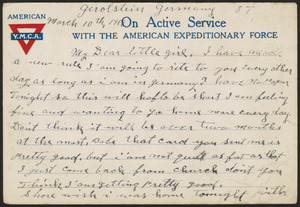 Gerolstein Germany
AMERICAN
Y.M.C.A.
March 10th
On Active Service
WITH THE AMERICAN EXPEDITIONARY FORCE
My Dear little girl. I have made
a new rule I am going to rite to you every other
day as long as i am in germany I have no Paper
Tonight so this will hafto be short I am feeling
fine and wanting to go home more every day.
Dont think it will be over two months
at the most. that card you sent me is
Pretty good. but i am not quite as fat as that
I just come back from church dont you
Think I am getting Pretty good.
Shore wish i was home tonight with